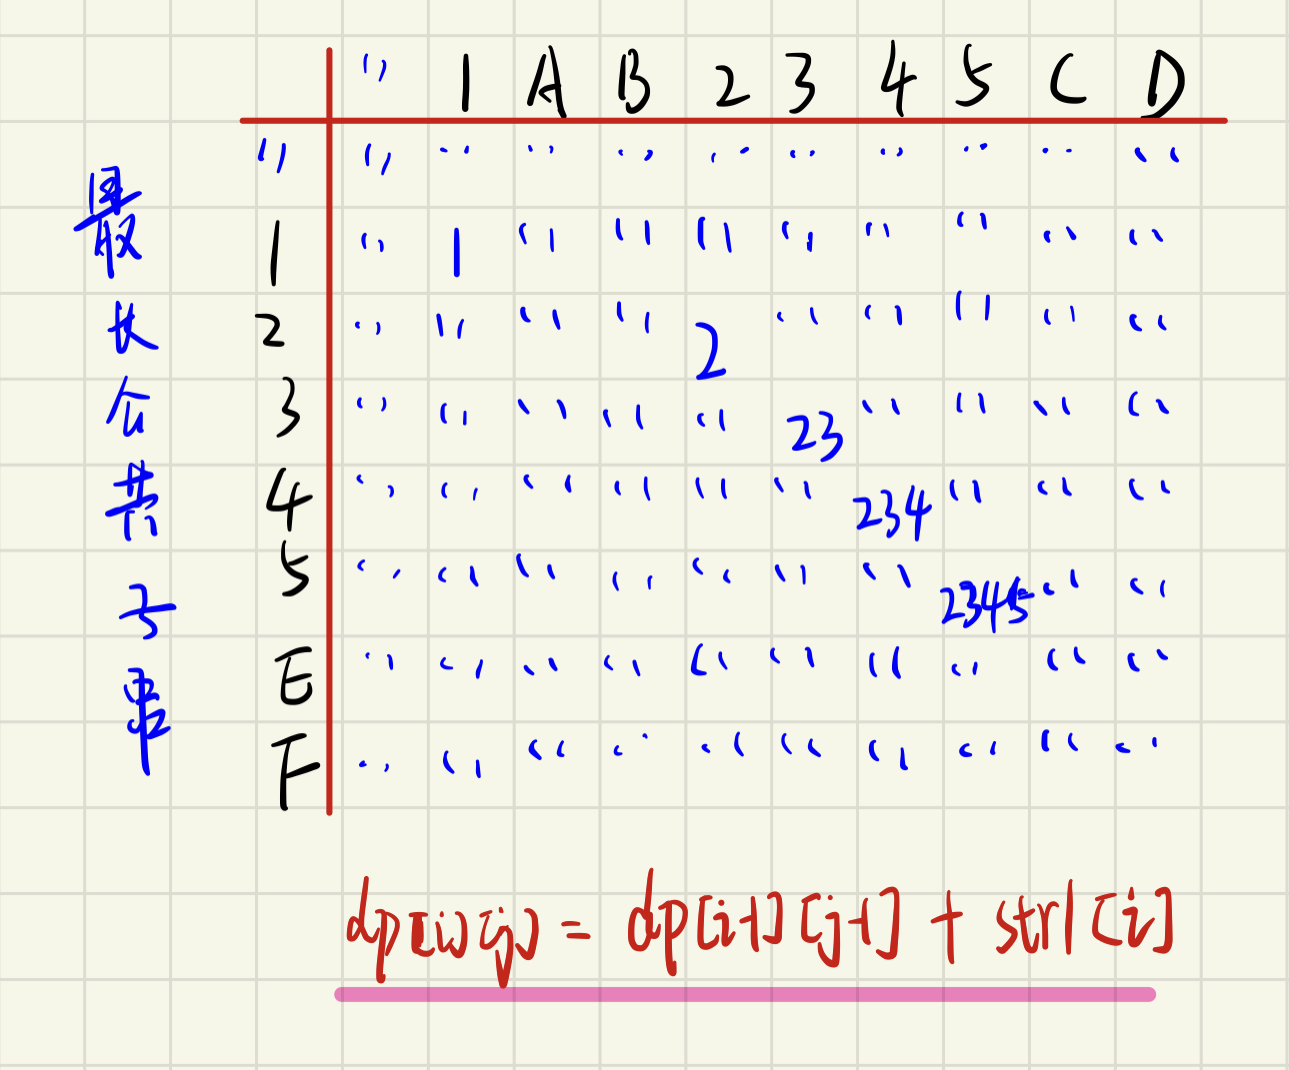 最长公共子串
" 1 A B 2 3 4 5 C D
" " " " " " " " " " "
1 " 1 " " " " " " " "
2 " " " " 2 " " " " "
3 " " " " " 23 " " " "
4 " " " " " " 234 " " "
5 " " " " " " " 2345 " "
E " " " " " " " " " "
F " " " " " " " " " "
dp[i][j] = dp[i-1][j-1] + str1[i]